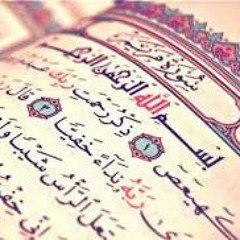 سُورَةُ مَرْيَمَ
بِسْمِ اللَّهِ الرَّحْمَٰنِ الرَّحِيمِ
كٓهيعٓصٓ ١ ذِكْرُ رَحْمَتِ رَبِّكَ
رَبَّهُ نِدَآءً خَفِيًّا ٣ قَالَ
ٱلرَّأْسُ شَيْبًا
إِنِّى خِفْتُ